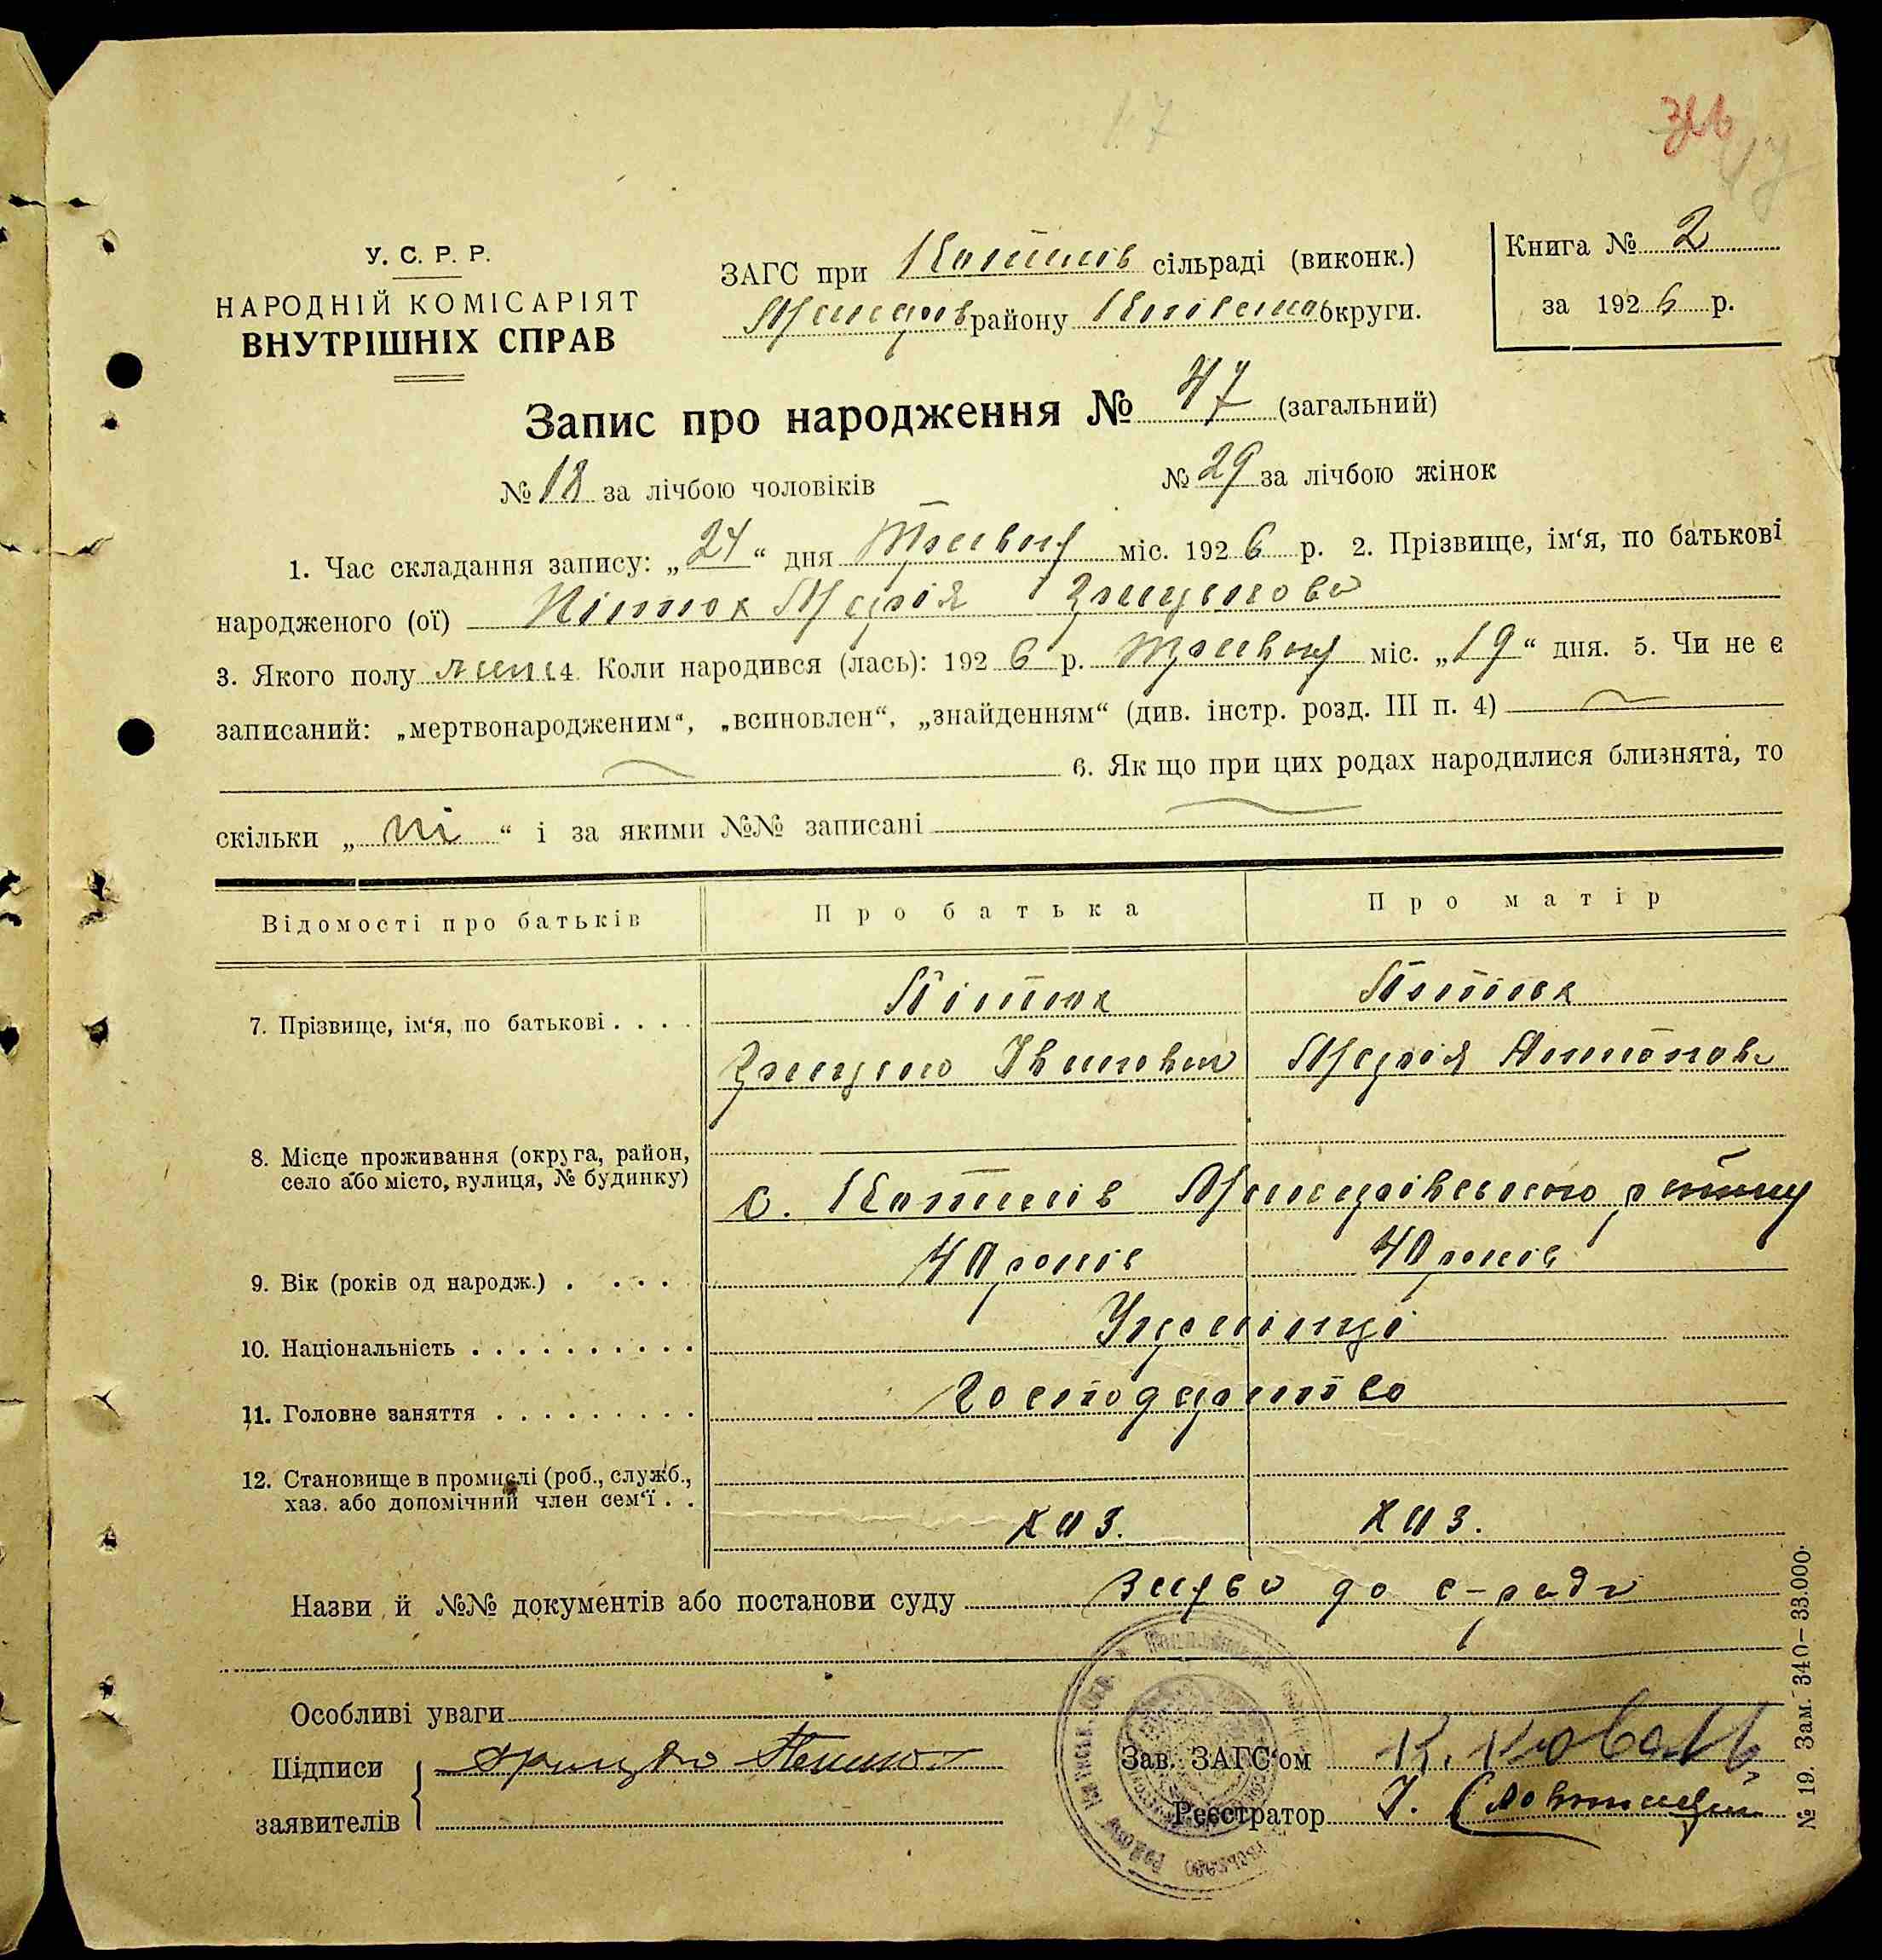 17
У. С. Р. Р.
НАРОДНІЙ КОМІСАРІЯТ
ВНУТРІШНІХ СПРАВ
ЗАГС при Копилів сільраді (виконк.)
Макарів району Київської округи.
Книга № 2
за 1926 р.
Запис про народження № 47 (загальний)
№ 18 за лічбою чоловіків № 29 за лічбою жінок
1. Час складання запису: „24“ дня Травня міс. 1926 р. 2. Прізвище, ім‘я, по батькові
народженого (ої) Марія Грицькова
3. Якого полу жін 4. Коли народився (лась): 1926 р. Травня міс. „19“ дня. 5. Чи не є
записаний: „мертвонародженим“, „всиновлен“, „знайденням“ (див. інстр. розд. III п. 4)
6. Як що при цих родах народилися близнята, то
скільки „ні“ і за якими №№ записані
Відомості про батьків Про батька Про матір
7. Прізвище, ім‘я, по батькові . . . .
Грицько Іванович Марія Антонов.
8. Місце проживання (округа, район,
село або місто, вулиця, № будинку)
с. Копилів Макарівського району
9. Вік (років од народж.) . . . . 40 років 40 років
10. Національність . . . . . . . . . . Українці
11. Головне заняття . . . . . . . . . Господарство
12. Становище в промислі (роб., служб.,
хаз. або допомічний член сем‘ї . .
хаз. хаз.
Назви й №№ документів або постанови суду заява до с-ради
Особливі уваги
Підписи Грицько Зав. ЗАГС‘ом К. Коваль
заявителів Реєстратор
№ 19. Зам. 340—33.000.